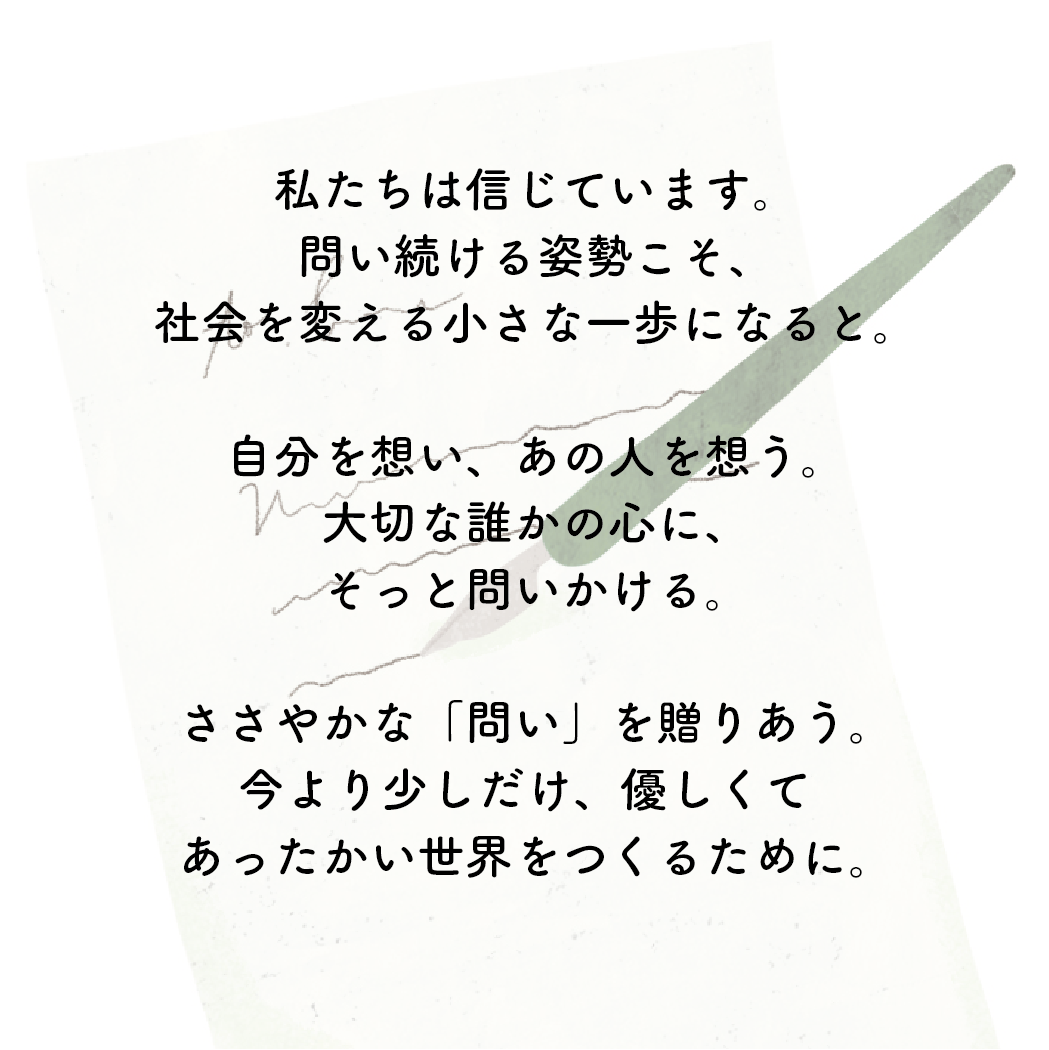 私たちは信じています。
問い続ける姿勢こそ、
社会を変える小さな一歩になると。
自分を想い、あの人を想う。
大切な誰かの心に、
そっと問いかける。
ささやかな「問い」を贈りあう。
今より少しだけ、優しくて
あったかい世界をつくるために。